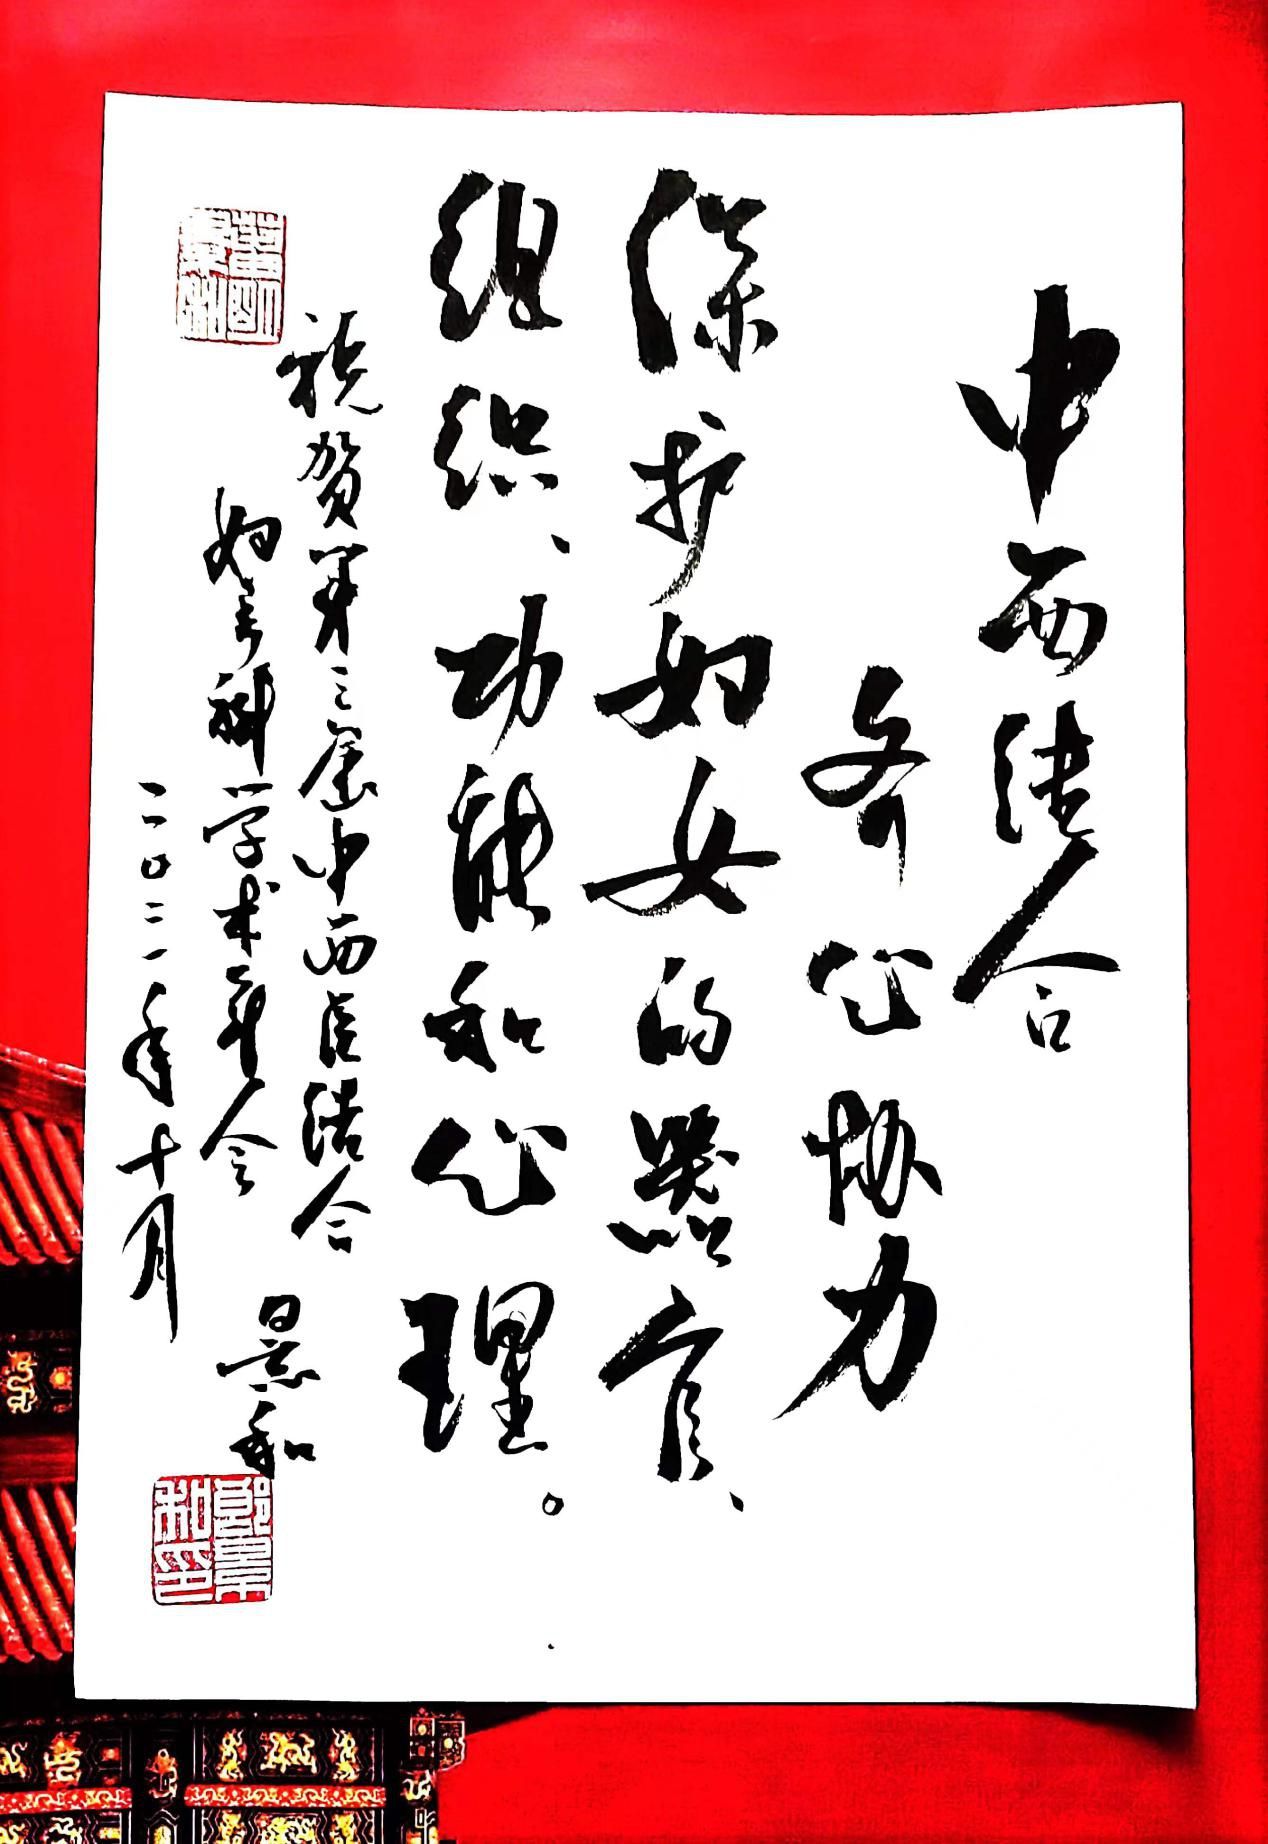 中西结合
齐心协力
保护妇女的器官、
组织、功能和心理。
祝贺第三届中西医结合
妇产科学术年会
景和
二〇二一年十月
郎景和印